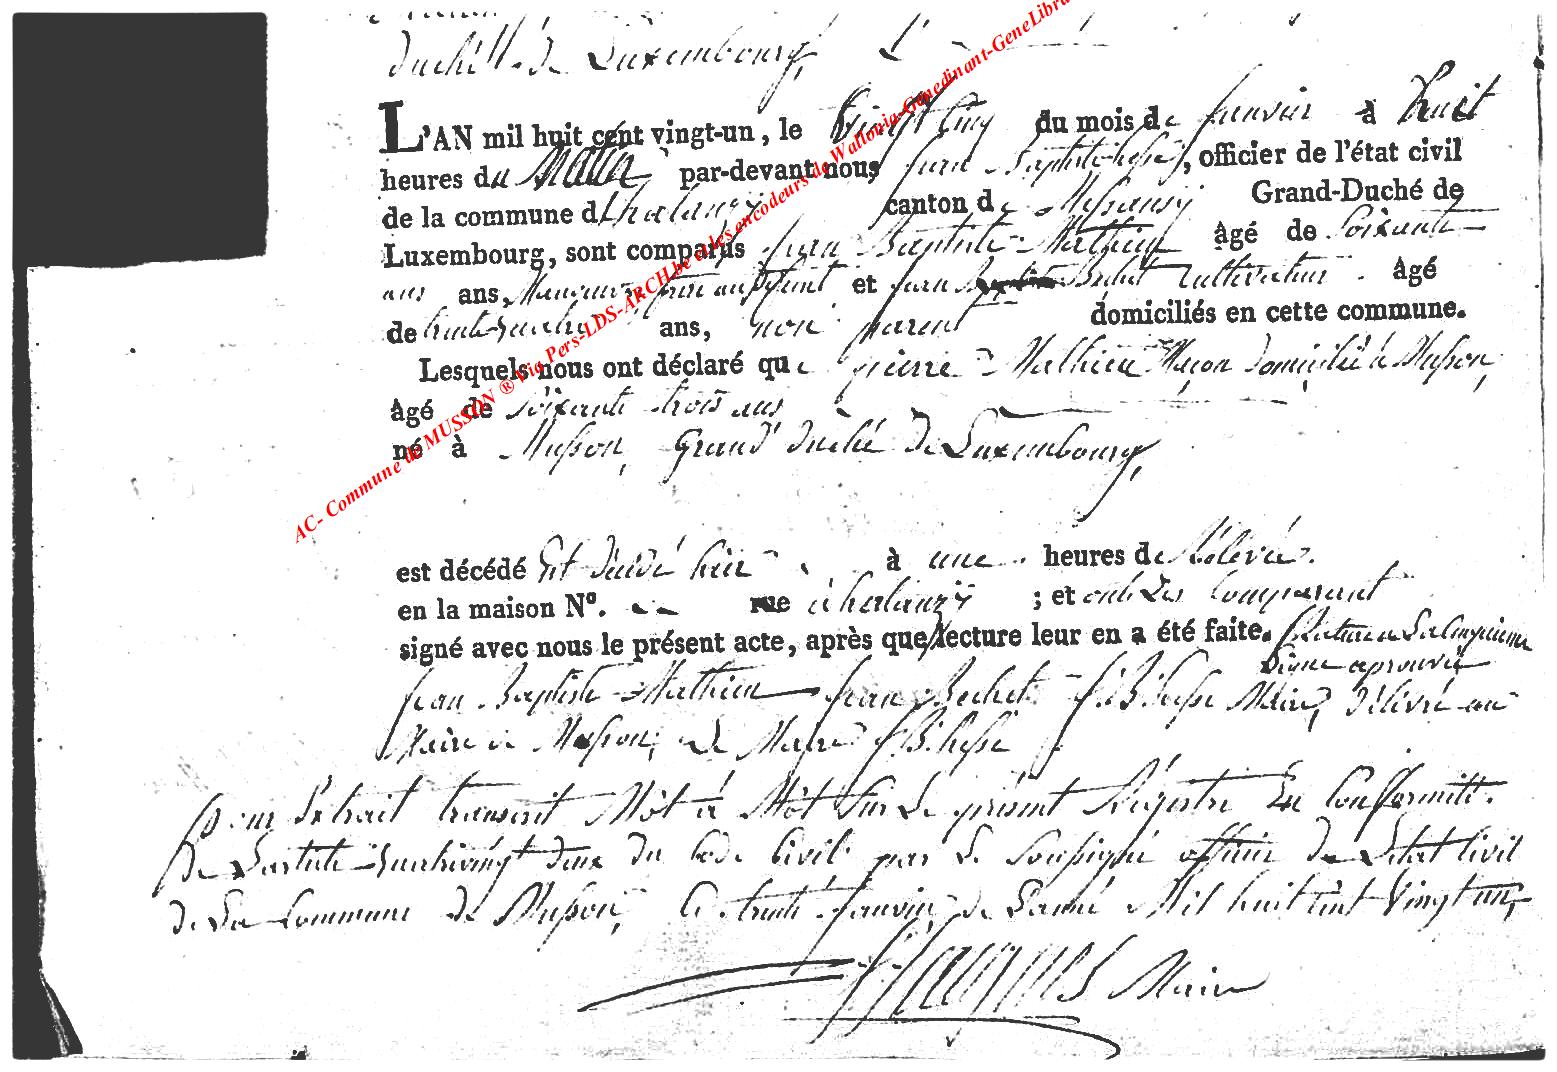 duchéll. de Luxembourg, L'
L'AN mil huit cent vingt-un, le Vingt Cinq du mois de Janvier à huit
heures du Matin par-devant nous Jean Baptiste hesse, officier de l'état civil
de la commune d'halanzy canton de Messancy Grand-Duché de
Luxembourg, sont comparus Jean Baptiste Mathieu âgé de Soixante
ans ans, frère au défunt et Jean cultivateur âgé
de trente quatre ans, non parent domiciliés en cette commune.
Lesquels nous ont déclaré que pierre Mathieu Maçon domicilié à Musson,
âgé de Soixante trois ans
né à Musson, Grand duché de Luxembourg,
est décédé Est décédé hier à une heures de Rélevée.
en la maison N°. rue à halanzy ; et ont les Comparant
signé avec nous le présent acte, après que lecture leur en a été faite. Rature a La Cinquieme
Ligne aprouvée
Jean Baptiste Mathieu Jean Bechet J: B: hesse Maire, délivré au
Maire de Musson, Le Maire J: B. hesse
Pour Extrait transcrit Môt à Môt Sur Le présent Régistre En Conformité
De Larticle quatrevingt deux du Code Civil par Le Soussigné officier de Letat Civil
de La Commune de Musson, Ce trente Janvier de Lanné Mil huit cent Vingt un,
Maire
AC- Commune de MUSSON ® Via Pers-LDS-ARCH.be et les encodeurs de Wallonia-Genedinant-GeneLibra